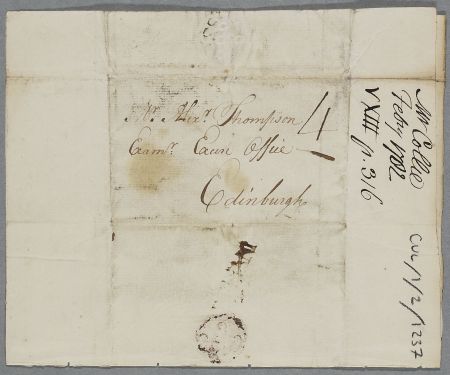 Mr. Alexr Thompson
Examr. Excise Office
Edinburgh
4
Mr Collie
Febry 1782
V XIII p. 316
CUL/1/2/1237